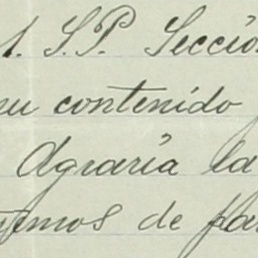 1. S.P. Secció
su contenido
Agraria la
mos de pa